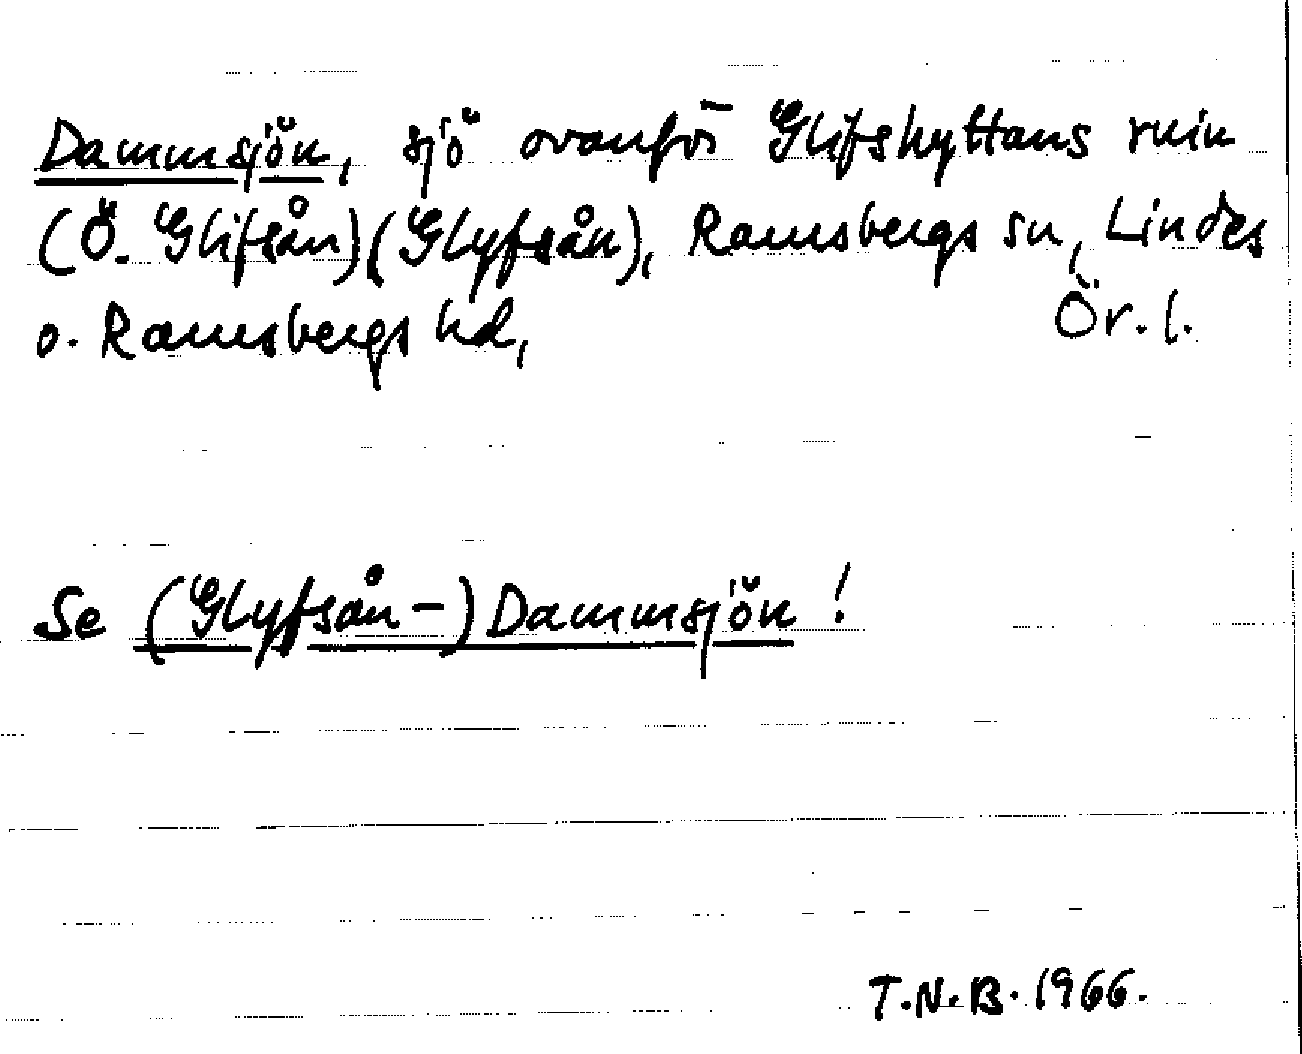 Dammsjön, sjö ovanför Glifshyttans ruin
(Ö. Glifsån)(Glyfsån), Ramsbergs sn, Lindes
o. Ramsbergs hd, Ör. l.
Se (Glyfsån-)Dammsjön!
T.N.B. 1966.